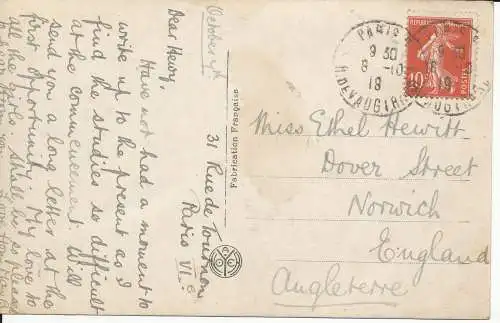 October 7th
31 Rue de Tournon
Paris VIe
Dear Hewry,
Have not had a moment to
write up to the present as I
find the studies so difficult
at the commencement. Will
send you a long letter at the
first opportunity. My love to
all the girls
Fabrication Française
REPUBLIQUE FRANÇAISE
10c
POSTES
PARIS
9 30
8 -10
19
R. DE VAUGIRARD
Miss Ethel Hewitt
Dover Street
Norwich
England
Angleterre